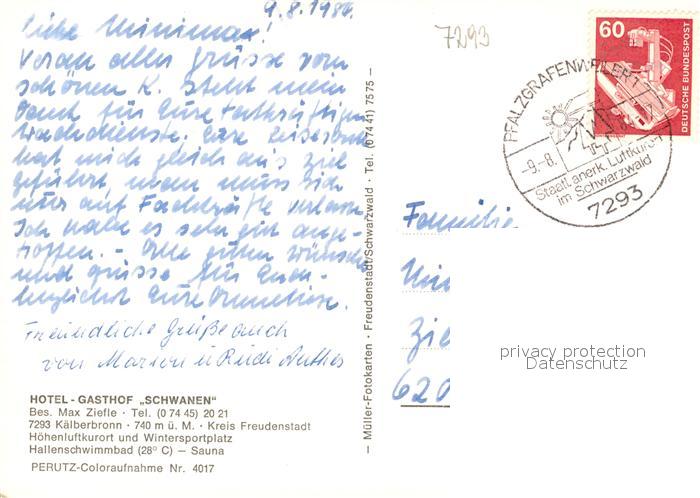 9.8.1986.
7293
Liebe Minimax!
Voran alles grüsse vom
schönen K. Steht mein
Dank für Eure tatkräftigen
hat mich gleich ans Ziel
geführt, man muss sich
nur auf Fachkräfte verlassen
Ich habe es sehr gut ange-
troffen. - Alle guten Wünsche
und grüsse für Euch -
herzlichst Eure
Freundliche Grüße auch
von Marion u Rudi Anthes
HOTEL - GASTHOF „SCHWANEN“
Bes. Max Ziefle · Tel. (0 74 45) 20 21
7293 Kälberbronn · 740 m ü. M. · Kreis Freudenstadt
Höhenluftkurort und Wintersportplatz
Hallenschwimmbad (28° C) — Sauna
PERUTZ-Coloraufnahme Nr. 4017
— Müller-Fotokarten · Freudenstadt/Schwarzwald · Tel. (0 74 41) 7575 —
60
DEUTSCHE BUNDESPOST
PFALZGRAFENWEILER 1
-9.-8.
Staatl. anerk. Luftkurort
im Schwarzwald
7293
Familie
Zie
620
privacy protection
Datenschutz